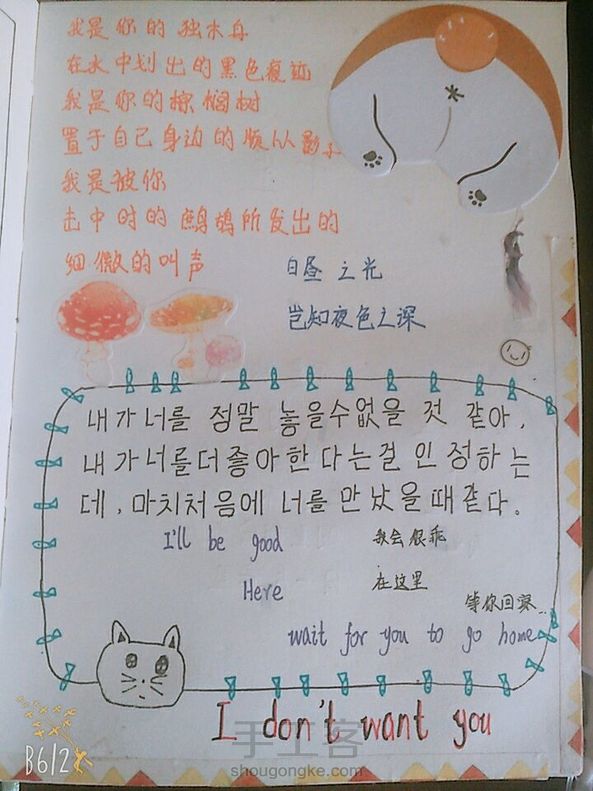 我是你的独木舟
在水中划出的黑色痕迹
我是你的棕榈树
置于自己身边的顺从影子
我是被你
击中时的鹧鸪所发出的
细微的叫声
白昼之光
岂知夜色之深
내가너를 정말 놓을수없을 것 같아.
내가너를더좋아한다는걸 인정하는
데, 마치처음에 너를 만났을때같다.
I'll be good 我会很乖
Here 在这里
等你回家...
wait for you to go home
I don't want you
手工客
shougongke.com
B612